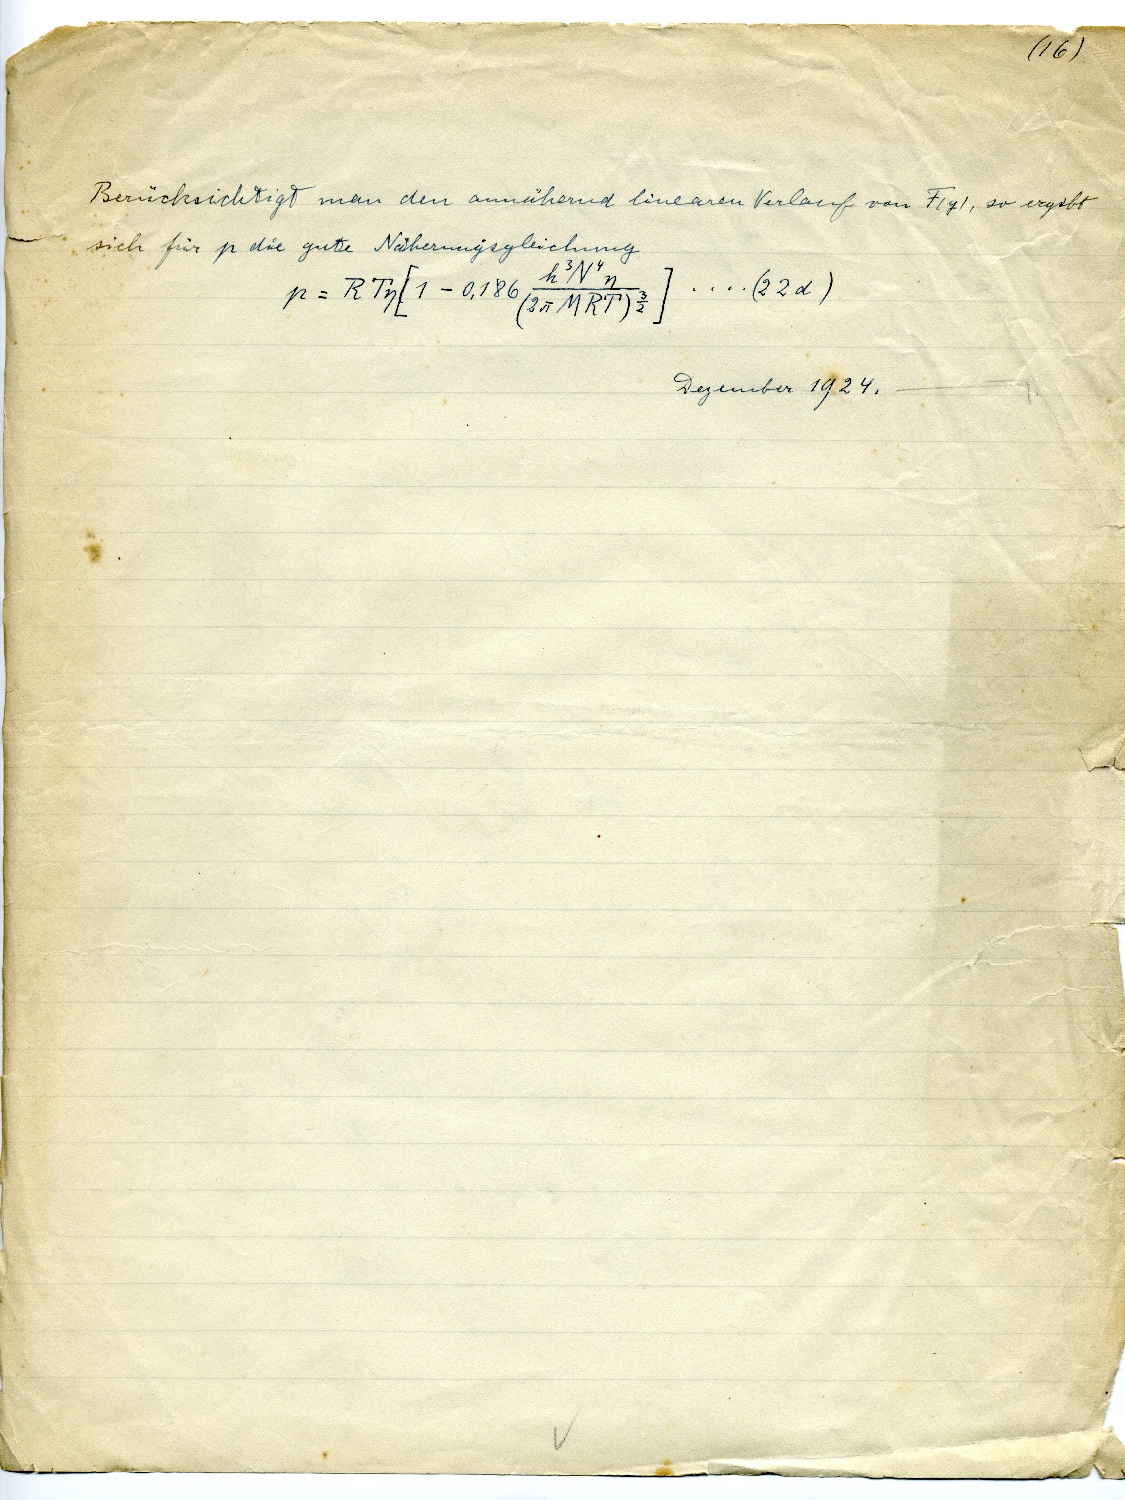 (16)
Berücksichtigt man den annähernd linearen Verlauf von F(y), so ergibt
sich für p die gute Näherungsgleichung
p = RTη[1 − 0,186 h³N⁴η/(2πMRT)^(3/2)] ....(22d)
Dezember 1924.